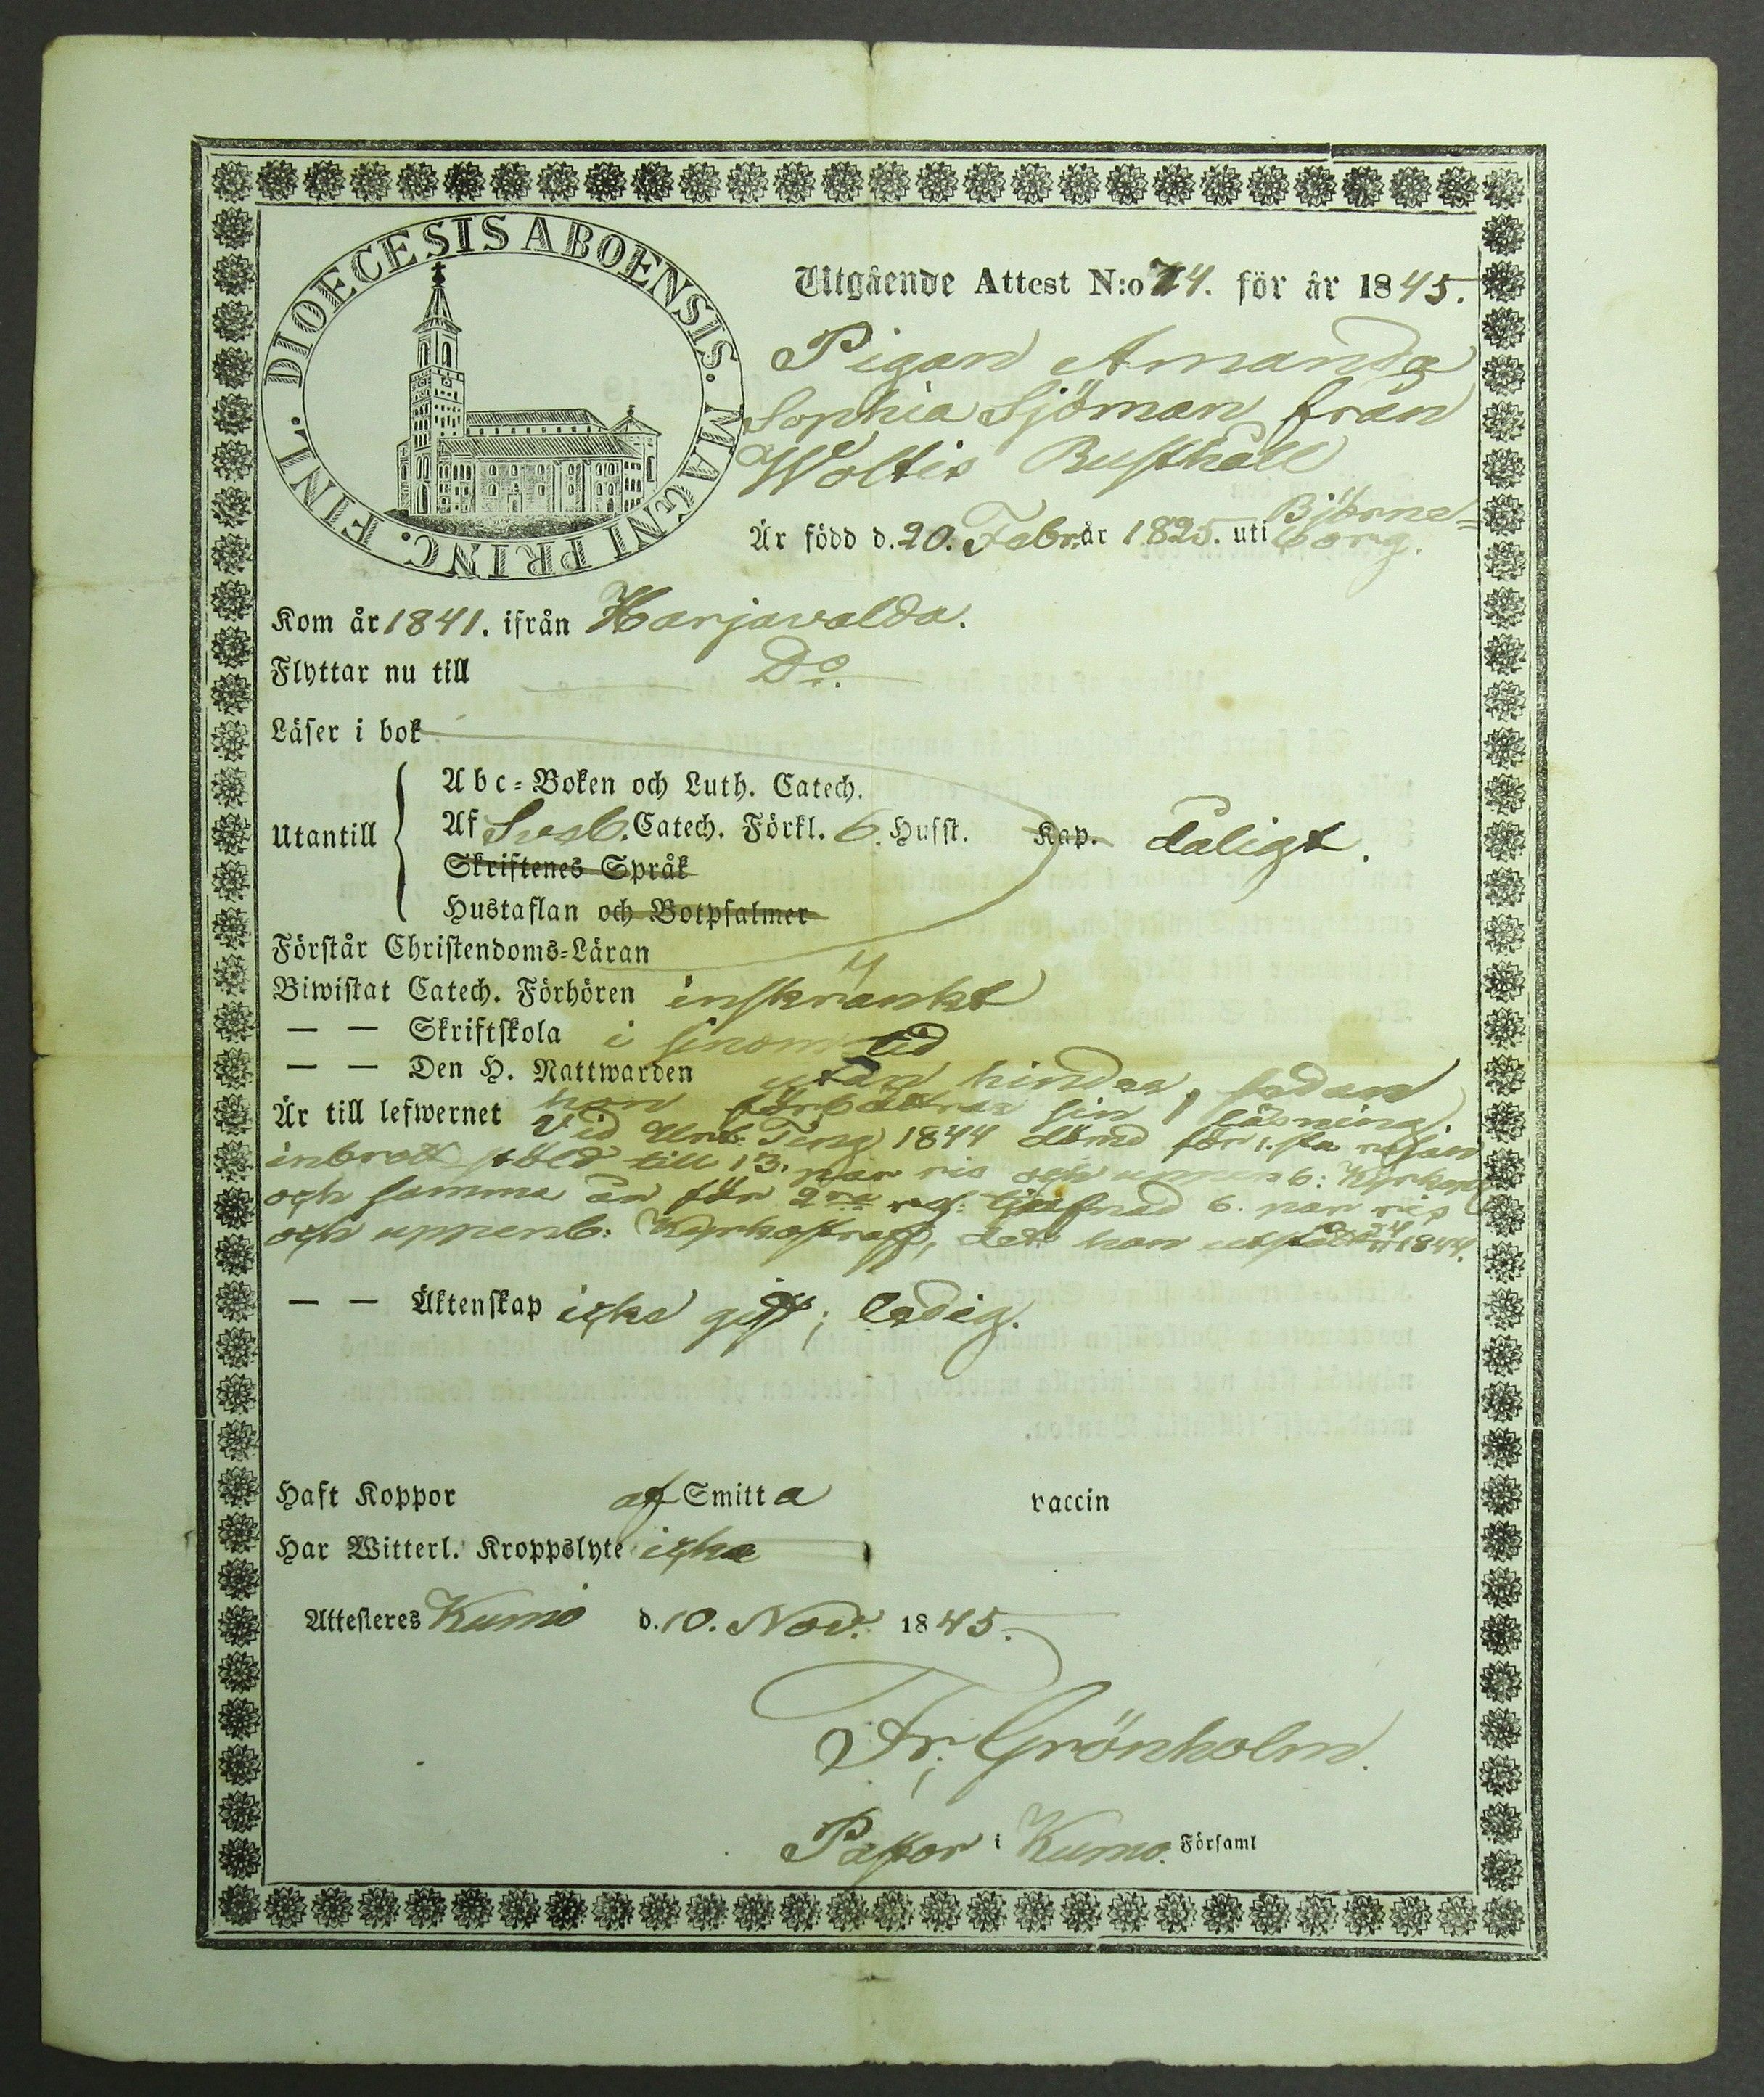 DIOECESIS ABOENSIS. MAGNI PRINC. FINL.
Utgående Attest N:o 74. för år 1845.
Pigan Amanda
Sophia Sjöman från
Woltis Rusthåll
Är född d. 20. Febr. år 1825. uti Björne=
borg.
Kom år 1841. ifrån Harjavalda.
Flyttar nu till Do.
Läser i bok
Utantill
Abc=Boken och Luth. Catech.
Af Sveb. Catech. Förkl. 6. Husst. Kap. dåligt.
Skriftenes Språk
Hustaflan och Botpsalmer
Förstår Christendoms=Läran
Biwistat Catech. Förhören inskränkt
— — Skriftskola i sinom tid
— — Den H. Nattwarden utan hinder, sedan
Är till lefwernet hon förbättrar sin läsning
Vid Urt. Ting 1844 dömd för 1.sta resan
inbrott stöld till 13. par ris och uppenb: Kyrkopl
och samma år för 2ra res: tjufnad 6. par ris
och uppenb: Kyrkostraff, det hon utstått 1844.
— — Äktenskap icke gift; ledig.
Haft Koppor af Smitta vaccin
Har Witterl. Kroppslyte icke
Attesteres Kumo d. 10. Nov. 1845.
Fr. Grönholm.
Pastor i Kumo. Församl